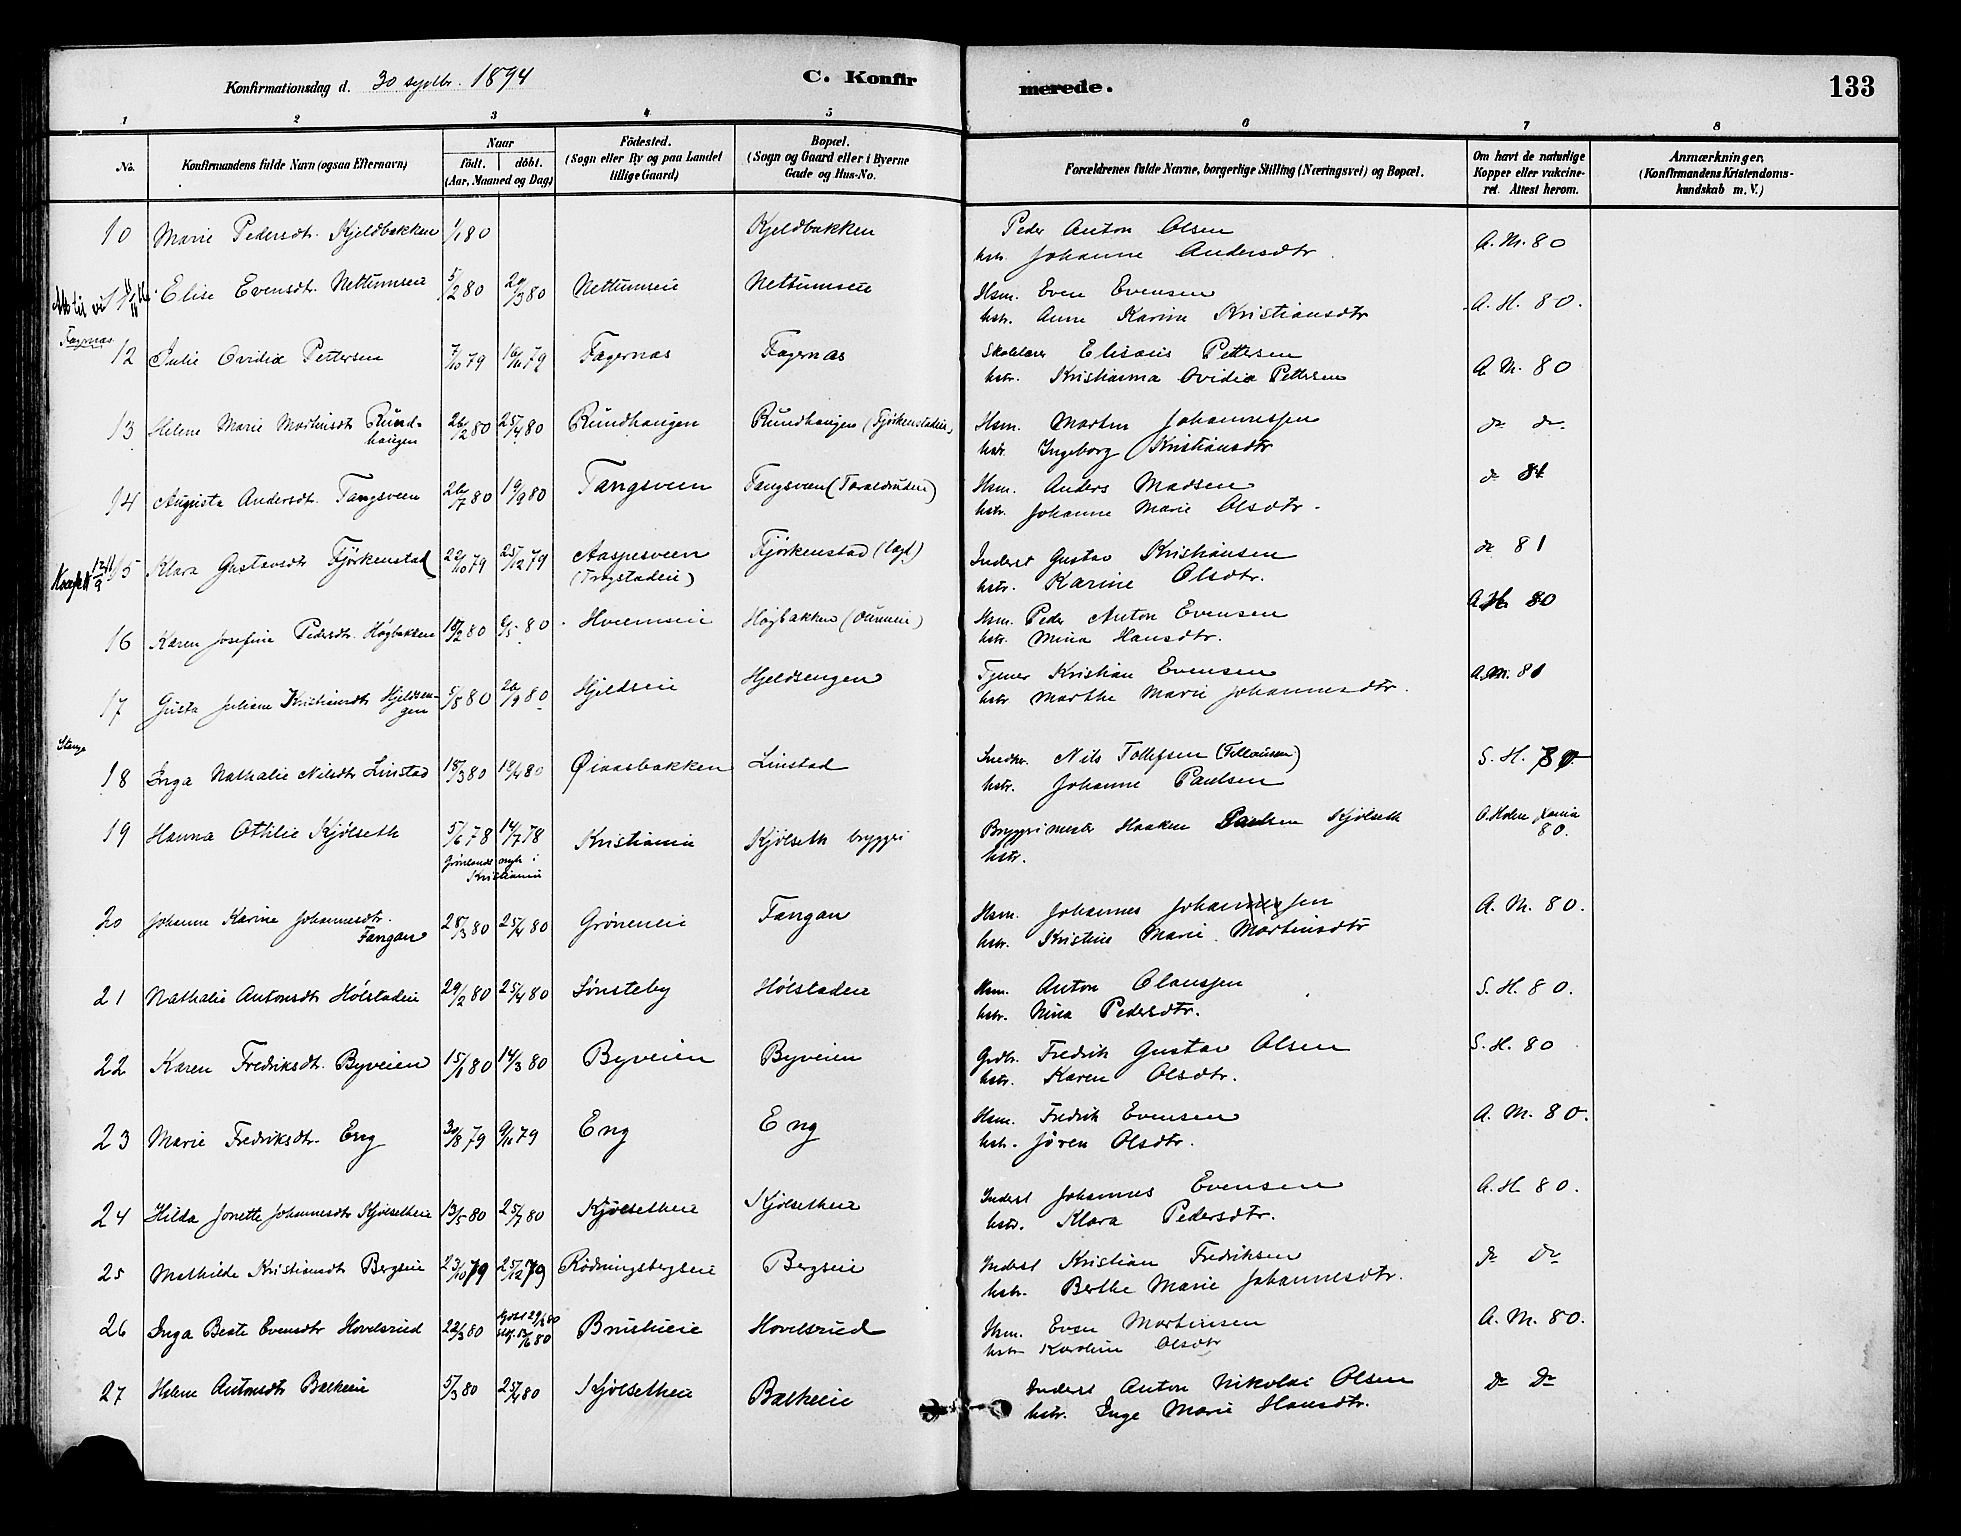 Konfirmationsdag d. 30 septbr. 1894
C. Konfir
merede.
133
1 2 3 4 5 6 7 8
No.
Konfirmandens fulde Navn (ogsaa Efternavn)
Naar
født. døbt.
(Aar, Maaned og Dag)
Födested.
(Sogn eller By og paa Landet
tillige Gaard)
Bopæl.
(Sogn og Gaard eller i Byerne
Gade og Hus-No.
Forældrenes fulde Navne, borgerlige Stilling (Næringsvei) og Bopæl.
Om havt de naturlige
Kopper eller vakcine-
ret. Attest herom.
Anmærkninger.
(Konfirmandens Kristendoms-
kundskab m. V.)
10 Marie Pedersdtr. Kjeldbakken 1/1 80 Kjeldbakken Peder Anton Olsen A. M. 80
hstr. Johanne Andersdtr.
11 Elise Evensdtr. Nettumseie 5/2 80 29/3 80 Nettumseie Nettumseie Hsm. Even Evensen A. H. 80.
hstr. Anne Karine Kristiansdtr
Fagernæs
12 Julie Ovidia Pettersen 7/10 79 16/11 79 Fagernæs Fagernæs Skolelærer Elisæus Pettersen A. M. 80
hstr. Kristianna Ovidia Pettersen
13 Helene Marie Martinsdtr Rund-
haugen 26/2 80 25/4 80 Rundhaugen Rundhaugen (Fjørkenstadeie) Hsm. Martin Johannessen do do
hstr. Ingeborg Kristiansdtr
14 Augusta Andersdtr. Tangsveen 26/7 80 19/9 80 Tangsveen Tangsveen (Taraldruden) Hsm. Anders Madsen do 81
hstr. Johanne Marie Olsdtr.
15 Klara Gustavsdtr Fjørkenstad 22/10 79 25/12 79 Aaspesveen
(Trogstadeie) Fjørkenstad (lægd) Inderst Gustav Kristiansen do 81
hstr. Karine Olsdtr.
16 Karen Josefine Pedersdtr. Høgbakken 18/2 80 9/5 80 Hveemseie Høgbakken Hsm. Peder Anton Evensen A. H. 80
hstr. Mina Hansdtr.
17 Gusta Juliane Kristiansdtr Hjeldsen-
gen 5/8 80 26/9 80 Hjeldseie Hjeldsengen Tjener Kristian Evensen A. M. 81
hstr Marthe Marie Johannesdtr.
Stange
18 Inga Nathalie Nilsdtr Linstad 18/3 80 18/4 80 Øiaasbakken Linstad Snedker Nils Tollefsen S. H. 80
hstr. Johanne Paulsen
19 Hanna Othilie Kjølseth 5/6 78 14/7 78 Kristiania Kjølseth bryggri Bryggrimester Haaken Paulsen Kjølseth A. Holm
80.
Grønlands i
Kristiania
hstr.
20 Johanne Karine Johannesdtr.
Tangan 28/3 80 25/4 80 Grøneneie Tangan Hsm. Johannes Johannesen A. M. 80.
hstr. Kristine Marie Martinsdtr
21 Nathalie Antonsdtr Hølstadeie 29/2 80 25/4 80 Sønsteby Hølstadeie Hsm. Anton Olaussen S. H. 80.
hstr. Nina Pedersdtr.
22 Karen Fredriksdtr. Byveien 15/1 80 14/3 80 Byveien Byveien Grdbr. Fredrik Gustav Olsen S. H. 80
hstr. Karen Olsdtr.
23 Marie Fredriksdtr. Eng 30/8 79 9/11 79 Eng Eng Hsm. Fredrik Evensen A. M. 80.
hstr. Jøren Olsdtr.
24 Hilda Jonette Johannesdtr Kjølsetheie 13/5 80 25/7 80 Kjølsetheie Kjølsetheie Inderst Johannes Evensen A. H. 80.
hstr. Klara Pedersdtr.
25 Mathilde Kristiansdtr Bergseie 23/10 79 25/12 79 Rødningsbergseie Bergseie Inderst Kristian Fredriksen do do
hstr. Berthe Marie Johannesdtr.
26 Inga Beate Evensdtr Hovelsrud 22/3 80 Hovelsrud Hsm. Even Martinsen A. M. 80.
hstr Karoline Olsdtr
27 Helene Antonsdtr Balkeeie 5/3 80 25/4 80 Kjølsetheie Balkeeie Inderst Anton Nikolai Olsen do do
hstr. Inge Marie Hansdtr.